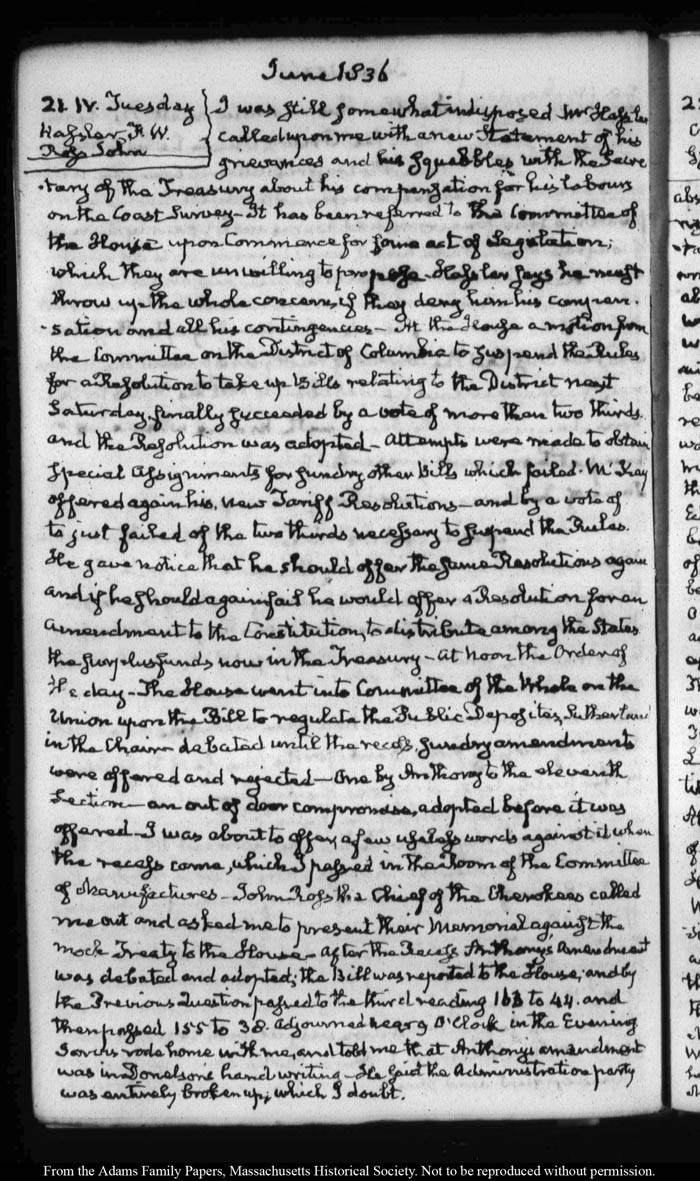 June 1836
21. IV. Tuesday
Hassler, F. W.
Ross John
I was still somewhat indisposed Mr Hassler
called upon me with a new Statement of his
grievances and his squabbles with the Secre
-tary of the Treasury about his compensation for his labours
on the Coast Survey— It has been referred to the Committee of
the House upon Commerce for some act of Legislation;
which they are unwilling to propose. Hassler says he must
throw up the whole concern, if they deny him his compen-
-sation and all his contingencies— At the House a motion from
the Committee on the District of Columbia to suspend the Rules
for a Resolution to take up Bills relating to the District next
Saturday, finally succeeded by a vote of more than two thirds.
and the Resolution was adopted— Attempts were made to obtain
special assignments for sundry other Bills which failed. McKay
offered again his, new Tariff Resolutions— and by a vote of
to just failed of the two thirds necessary to suspend the Rules.
He gave notice that he should offer the same Resolutions again
and if he should again fail he would offer a Resolution for an
Amendment to the Constitution, to distribute among the States
the surplus funds now in the Treasury— At noon the Order of
the day— The House went into Committee of the Whole on the
Union upon the Bill to regulate the Public Deposites, Sutherland
in the Chair— debated until the recess, sundry amendments
were offered and rejected— One by Anthony to the eleventh
Section— an out of door compromise, adopted before it was
offered— I was about to offer a few useless words against it when
the recess came, which I passed in the Room of the Committee
of Manufactures— John Ross the Chief of the Cherokees called
me out and asked me to present their Memorial against the
mock Treaty to the House— After the Recess Anthony's Amendment
was debated and adopted; the Bill was reported to the House; and by
the Previous Question passed to the third reading 163 to 44. and
then passed 155 to 38. Adjourned near 9 O'Clock in the Evening
rode home with me, and told me that Anthony's amendment
was in Donelson's hand writing— He said the Administration party
was entirely broken up; which I doubt.
From the Adams Family Papers, Massachusetts Historical Society. Not to be reproduced without permission.